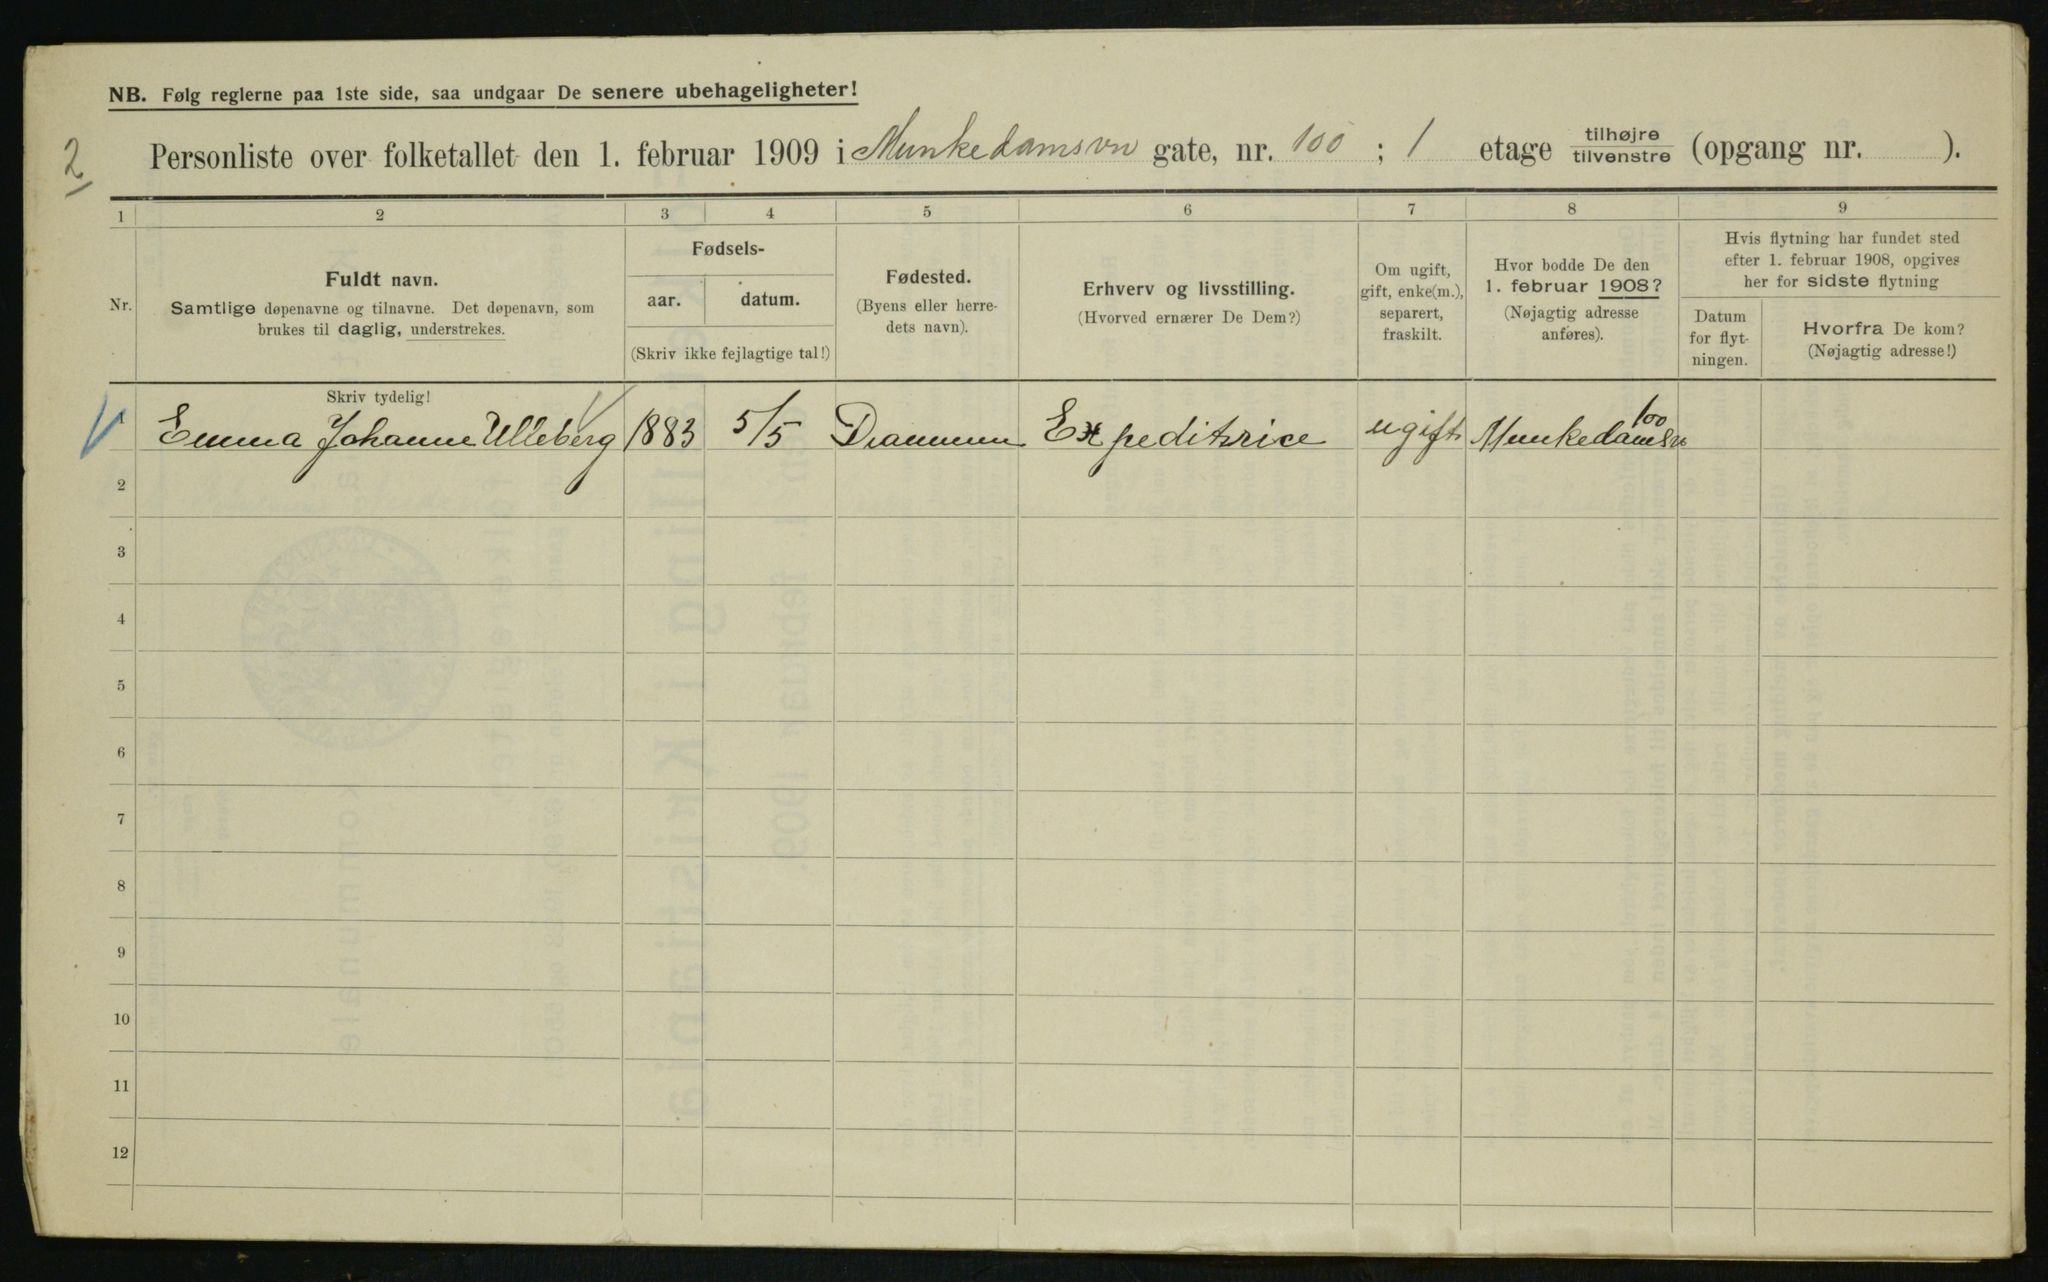 NB. Følg reglerne paa 1ste side, saa undgaar De senere ubehageligheter!
2
Personliste over folketallet den 1. februar 1909 i Munkedamsvn gate, nr. 100 ; 1 etage tilhøjre tilvenstre (opgang nr. ).
1 2 3 4 5 6 7 8 9
Nr.
Fuldt navn.
Samtlige døpenavne og tilnavne. Det døpenavn, som
brukes til daglig, understrekes.
Fødsels-
aar. datum.
(Skriv ikke fejlagtige tal!)
Fødested.
(Byens eller herre-
dets navn).
Erhverv og livsstilling.
(Hvorved ernærer De Dem?)
Om ugift,
gift, enke(m.),
separert,
fraskilt.
Hvor bodde De den
1. februar 1908?
(Nøjagtig adresse
anføres).
Hvis flytning har fundet sted
efter 1. februar 1908, opgives
her for sidste flytning
Datum
for flyt-
ningen.
Hvorfra De kom?
(Nøjagtig adresse!)
Skriv tydelig!
Emma Johanne Ulleberg 1883 5/5 Drammen Expeditrice ugift Munkedamsvn 100
2
3
4
5
6
7
8
9
10
11
12